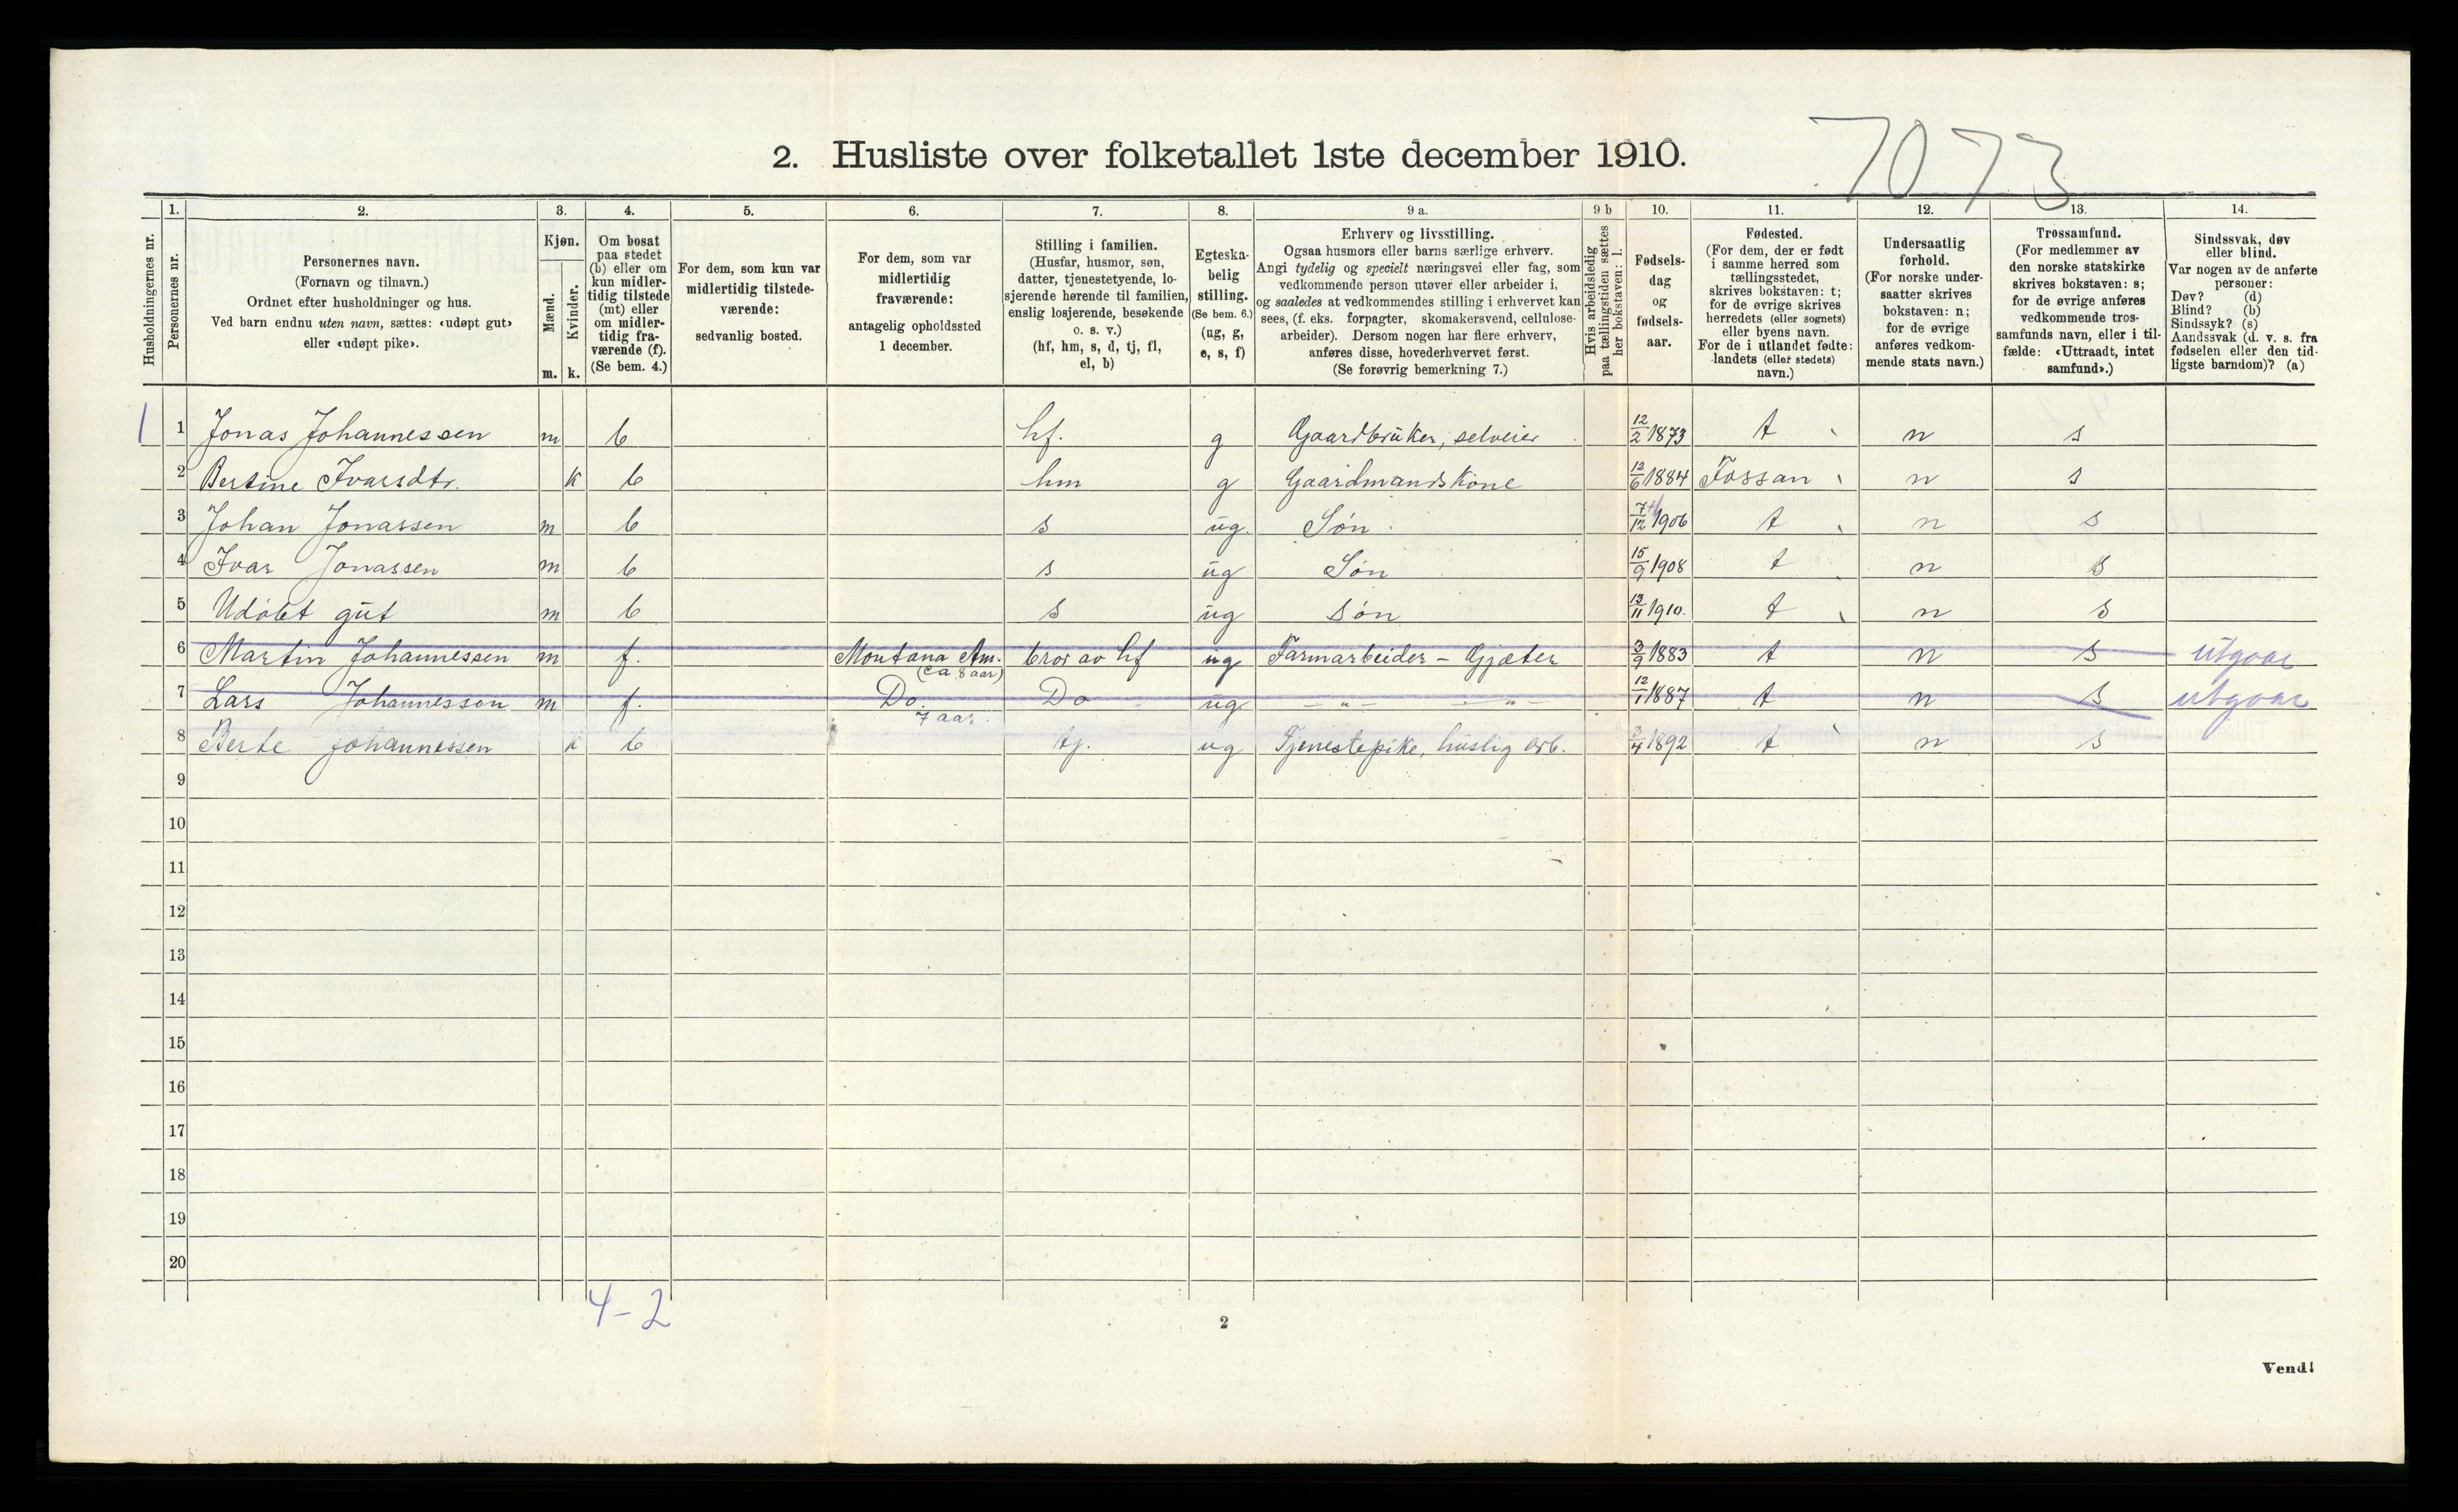 7073
2. Husliste over folketallet 1ste december 1910.
Husholdningernes nr.
1.
Personernes nr.
2.
Personernes navn.
(Fornavn og tilnavn.)
Ordnet efter husholdninger og hus.
Ved barn endnu uten navn, sættes: «udøpt gut»
eller «udøpt pike».
3.
Kjøn.
Mænd.
Kvinder.
m. k.
4.
Om bosat
paa stedet
(b) eller om
kun midler-
tidig tilstede
(mt) eller
om midler-
tidig fra-
værende (f).
(Se bem. 4.)
5.
For dem, som kun var
midlertidig tilstede-
værende:
sedvanlig bosted.
6.
For dem, som var
midlertidig
fraværende:
antagelig opholdssted
1 december.
7.
Stilling i familien.
(Husfar, husmor, søn,
datter, tjenestetyende, lo-
sjerende hørende til familien,
enslig losjerende, besøkende
o. s. v.)
(hf, hm, s, d, tj, fl,
el, b)
8.
Egteska-
belig
stilling.
(Se bem. 6.)
(ug, g,
e, s, f)
9 a.
Erhverv og livsstilling.
Ogsaa husmors eller barns særlige erhverv.
Angi tydelig og specielt næringsvei eller fag, som
vedkommende person utøver eller arbeider i,
og saaledes at vedkommendes stilling i erhvervet kan
sees, (f. eks. forpagter, skomakersvend, cellulose-
arbeider). Dersom nogen har flere erhverv,
anføres disse, hovederhvervet først.
(Se forøvrig bemerkning 7.)
9 b
Hvis arbeidsledig
paa tællingstiden sættes
her bokstaven: l.
10.
Fødsels-
dag
og
fødsels-
aar.
11.
Fødested.
(For dem, der er født
i samme herred som
tællingsstedet,
skrives bokstaven: t;
for de øvrige skrives
herredets (eller sognets)
eller byens navn.
For de i utlandet fødte:
landets (eller stedets)
navn.)
12.
Undersaatlig
forhold.
(For norske under-
saatter skrives
bokstaven: n;
for de øvrige
anføres vedkom-
mende stats navn.)
13.
Trossamfund.
(For medlemmer av
den norske statskirke
skrives bokstaven: s;
for de øvrige anføres
vedkommende tros-
samfunds navn, eller i til-
fælde: «Uttraadt, intet
samfund».)
14.
Sindssvak, døv
eller blind.
Var nogen av de anførte
personer:
Døv? (d)
Blind? (b)
Sindssyk? (s)
Aandssvak (d. v. s. fra
fødselen eller den tid-
ligste barndom)? (a)
1 1 Jonas Johannessen m b hf. g Gaardbruker, selveier 12/2 1873 t n s
2 Bertine Ivarsdtr. k b hm g Gaardmandskone 12/6 1884 Fossan n s
3 Johan Jonassen m b s ug. Søn 7/12 1906 t n s
4 Ivar Jonassen m b s ug Søn 15/9 1908 t n s
5 Udøbt gut m b s ug Søn 13/11 1910. t n s
6 Martin Johannessen m f. Montana Am. (ca 8 aar) bror av hf ug Farmarbeider - Gjæter 3/9 1883 t n s utgaar
7 Lars Johannessen m f. Do. 7 aar. Do ug - " - - " - 12/1 1887 t n s utgaar
8 Berte Johannessen k b tj. ug Tjenestepike, huslig arb. 1892 t n s
9
10
11
12
13
14
15
16
17
18
19
20
4-2
2
Vend!